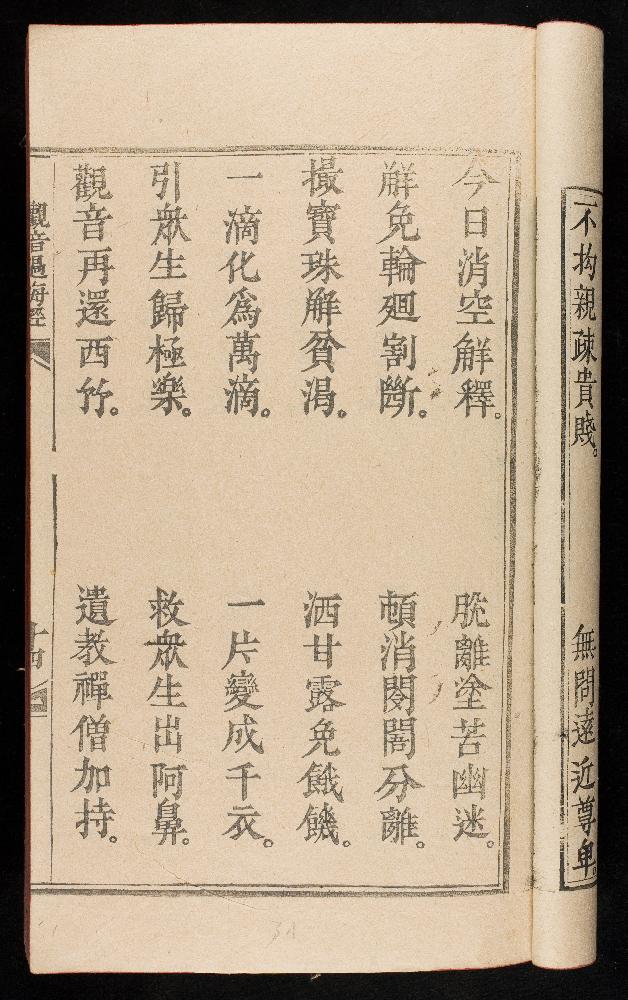 不拘親疎貴賤。
無問遠近尊卑。
今日消空解釋。
脫離塗苦幽迷。
觧免輪廻割斷。
頓消閔閣分離。
撮寶珠觧貧渴。
洒甘露免餓饑。
一滴化爲萬滴。
一片變成千衣。
引衆生歸極樂。
救衆生出阿鼻。
觀音再還西竹。
遺教禪僧加持。
觀音過海經
十四
34